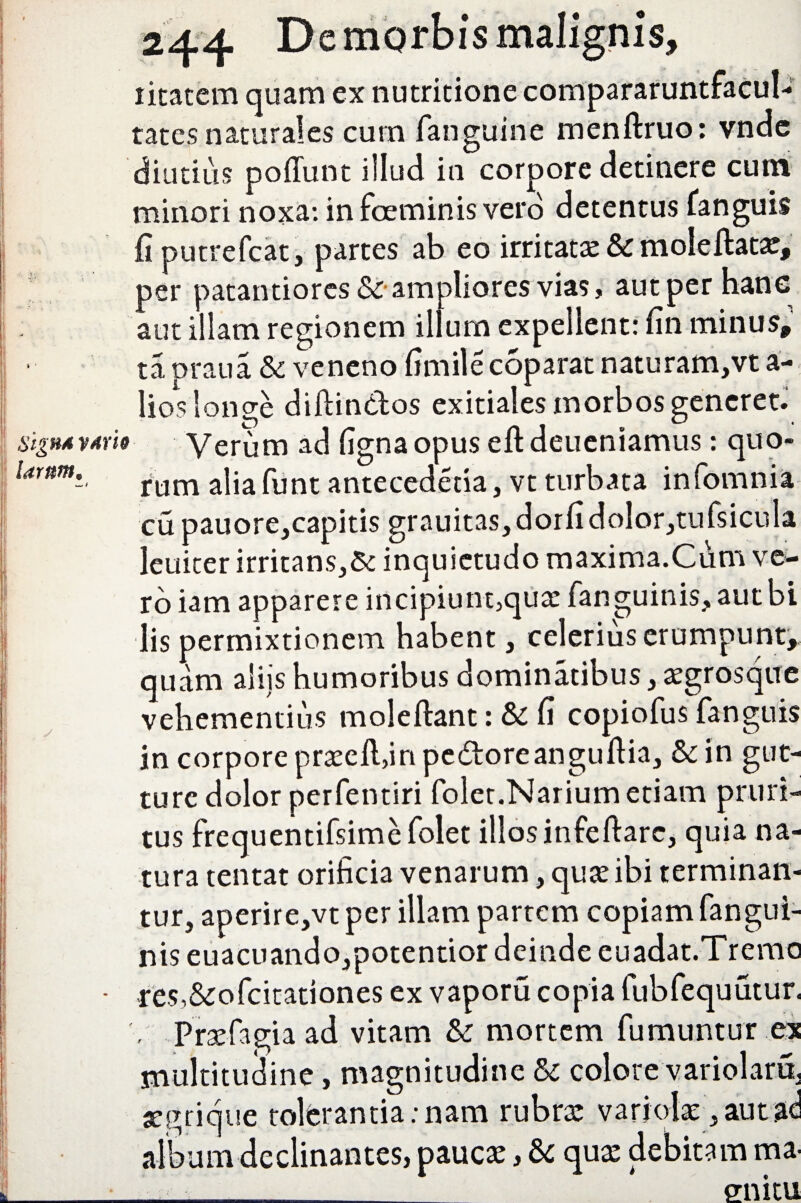 244 De morbis malignis,
litatem quam ex nutritione compararuntfacul-
tates naturales cum ſanguine menſtruo: vnde
diutiùs poſſunt illud in corpore detinere cum
minori noxa: in fœminis verò detentus ſanguis
ſi putreſcat, partes ab eo irritatæ & moleſtatæ,
per patantiores & ampliores vias, aut per hanc
aut illam regionem illum expellent: ſin minus,
tā prauā & veneno ſimilē cōparat naturam,vt a-
lios longè diſtinctos exitiales morbos generet.
Signa vario
larum.
Verùm ad ſigna opus eſt deueniamus: quo-
rum alia ſunt antecedētia, vt turbata inſomnia
cū pauore,capitis grauitas,dorſi dolor,tuſsicula
leuiter irritans,& inquietudo maxima.Cùm ve-
rò iam apparere incipiunt,quæ ſanguinis, aut bi
lis permixtionem habent, celeriùs erumpunt,
quàm alijs humoribus dominātibus, ægrosque
vehementiùs moleſtant: & ſi copioſus ſanguis
in corpore præeſt,in pectore anguſtia, & in gut-
ture dolor perſentiri ſolet.Narium etiam pruri-
tus frequentiſsimè ſolet illos infeſtare, quia na-
tura tentat orificia venarum, quæ ibi terminan-
tur, aperire,vt per illam partem copiam ſangui-
nis euacuando,potentior deinde euadat.Tremo
res,&oſcitationes ex vaporū copia ſubſequūtur.
Præſagia ad vitam & mortem ſumuntur ex
multitudine, magnitudine & colore variolarū,
ægrique tolerantia: nam rubræ variolæ, aut ad
album declinantes, paucæ, & quæ debitam ma-
gnitu